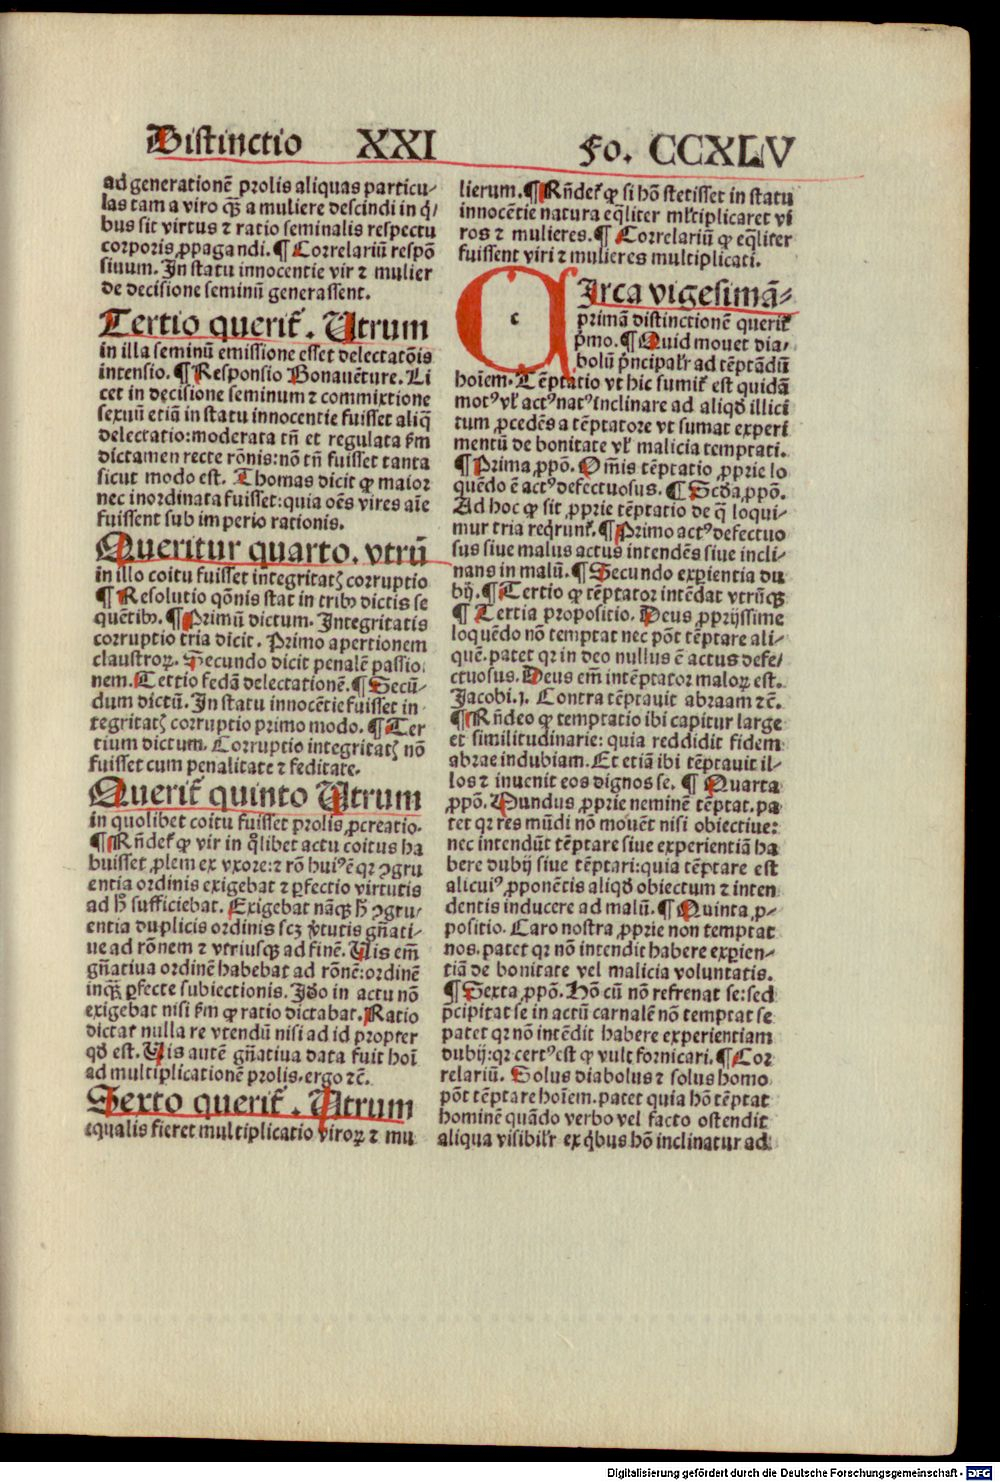 Distinctio XXI Fo. CCXLV
ad generationē prolis aliquas particu-
las tam a viro qꝫ̄ a muliere descindi in q̇-
bus sit virtus ⁊ ratio seminalis respectu
corporis ꝓpagandi. ¶ Correlariū respō
siuum. In statu innocentie vir ⁊ mulier
de decisione seminū generassent.
Tertio querit̃. Utrum
in illa seminū emissione esset delectatōis
intensio. ¶ Responsio Bonauēture. Li
cet in decisione seminum ⁊ commixtione
sexuū etiā in statu innocentie fuisset aliq̄
delectatio: moderata tñ et regulata ẜm
dictamen recte rōnis: nō tñ fuisset tanta
sicut modo est. Thomas dicit ꝙ maior
nec inordinata fuisset: quia oēs vires aīe
fuissent sub imperio rationis.
Queritur quarto. vtrū
in illo coitu fuisset integritatꝭ corruptio
¶ Resolutio qōnis stat in tribꝰ dictis se
quētibꝰ. ¶ Primū dictum. Integritatis
corruptio tria dicit. Primo apertionem
claustroꝝ. Secundo dicit penalē passio
nem. Tertio fedā delectationē. ¶ Secū-
dum dictū. In statu innocētie fuisset in
tegritatꝭ corruptio primo modo. ¶ Ter
tium dictum. Corruptio integritatꝭ nō
fuisset cum penalitate ⁊ feditate.
Querit̃ quinto Utrum
in quolibet coitu fuisset prolis ꝓcreatio.
¶ Rñdet̃ ꝙ vir in q̊libet actu coitus ha
buisset ꝓlem ex vxore: ⁊ rō huiꝰ ē qꝛ ꝯgru
entia ordinis exigebat ⁊ ꝑfectio virtutis
ad h̄ sufficiebat. Exigebat nāqꝫ h̄ ꝯgru-
entia duplicis ordinis scꝫ v̓tutis gn̄ati-
ue ad rōnem ⁊ vtriusqꝫ ad finē. Uis em̄
gn̄atiua ordinē habebat ad rōnē: ordinē
inqꝫ̄ ꝑfecte subiectionis. Iđo in actu nō
exigebat nisi ẜm ꝙ ratio dictabat. Ratio
dictat nulla re vtendū nisi ad id propter
qđ est. Uis autē gn̄atiua data fuit hoī
ad multiplicationē prolis. ergo ⁊c̄.
Sexto querit̃. Utrum
equalis fieret multiplicatio viroꝝ ⁊ mu
lierum. ¶ Rñdet̃ ꝙ si hō stetisset in statu
innocētie natura eq̄liter ml̓tiplicaret vi
ros ⁊ mulieres. ¶ Correlariū ꝙ eq̄liter
fuissent viri ⁊ mulieres multiplicati.
c
Irca vigesimā-
primā distinctionē querit̃
p̓mo. ¶ Quid mouet dia-
bolū p̓ncipalr̓ ad tēptādū
hoīem. Tēptatio vt hic sumit̃ est quidā
motꝰ vl̓ actꝰ natꝰ inclinare ad aliqđ illici
tum ꝓcedēs a tēptatore vt sumat experi
mentū de bonitate vl̓ malicia temptati.
¶ Prima ꝓpō. Om̄is tēptatio ꝓprie lo
quēdo ē actꝰ defectuosus. ¶ Scđa ꝓpō.
Ad hoc ꝙ sit ꝓprie tēptatio de q̄ loqui-
mur tria reqrunt̃. ¶ Primo actꝰ defectuo
sus siue malus actus intendēs siue incli-
nans in malū. ¶ Secundo exꝑientia du
bij. ¶ Tertio ꝙ tēptator intēdat vtrūqꝫ
¶ Tertia propositio. Deus ꝓprijssime
loquēdo nō temptat nec pōt tēptare ali-
quē. patet qꝛ in deo nullus ē actus defe-
ctuosus. Deus em̄ intēptator maloꝝ est.
Jacobi. j. Contra tēptauit abraam ⁊c̄.
¶ Rñdeo ꝙ temptatio ibi capitur large
et similitudinarie: quia reddidit fidem
abrae indubiam. Et etiā ibi tēptauit il-
los ⁊ inuenit eos dignos se. ¶ Quarta
ꝓpō. Mundus ꝓprie neminē tēptat. pa
tet qꝛ res mūdi nō mouēt nisi obiectiue:
nec intendūt tēptare siue experientiā ha
bere dubij siue tēptari: quia tēptare est
alicuiꝰ ꝓponētis aliqđ obiectum ⁊ inten
dentis inducere ad malū. ¶ Quinta ꝓ-
positio. Caro nostra ꝓprie non temptat
nos. patet qꝛ nō intendit habere exꝑien-
tiā de bonitate vel malicia voluntatis.
¶ Sexta ꝓpō. Hō cū nō refrenat se: sed
p̄cipitat se in actū carnalē nō temptat se
patet qꝛ nō intēdit habere experientiam
dubij: qꝛ certꝰ est ꝙ vult fornicari. ¶ Cor
relariū. Solus diabolus ⁊ solus homo
pōt tēptare hoīem. patet quia hō tēptat
hominē quādo verbo vel facto ostendit
aliqua visibilr̓ ex q̇bus hō inclinatur ad
Digitalisierung gefördert durch die Deutsche Forschungsgemeinschaft - DFG